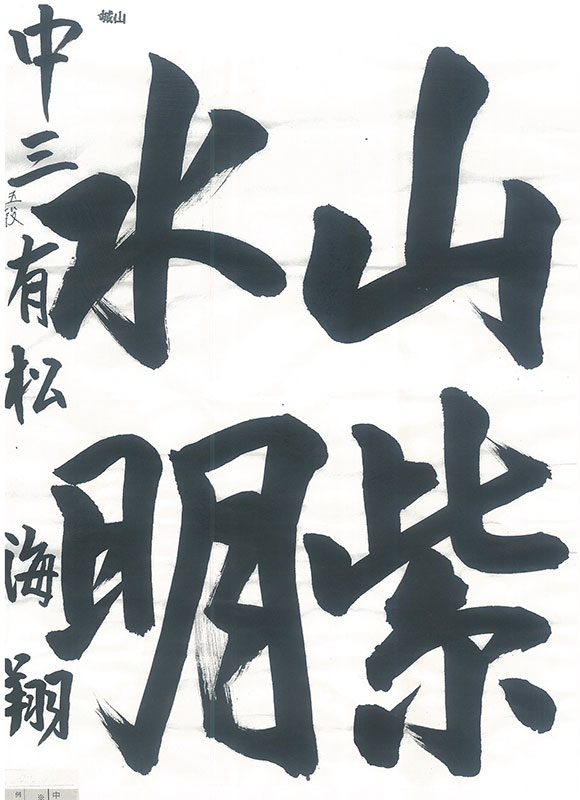 山紫
水明
中三 有松 海翔
五段
城山
中
※
例